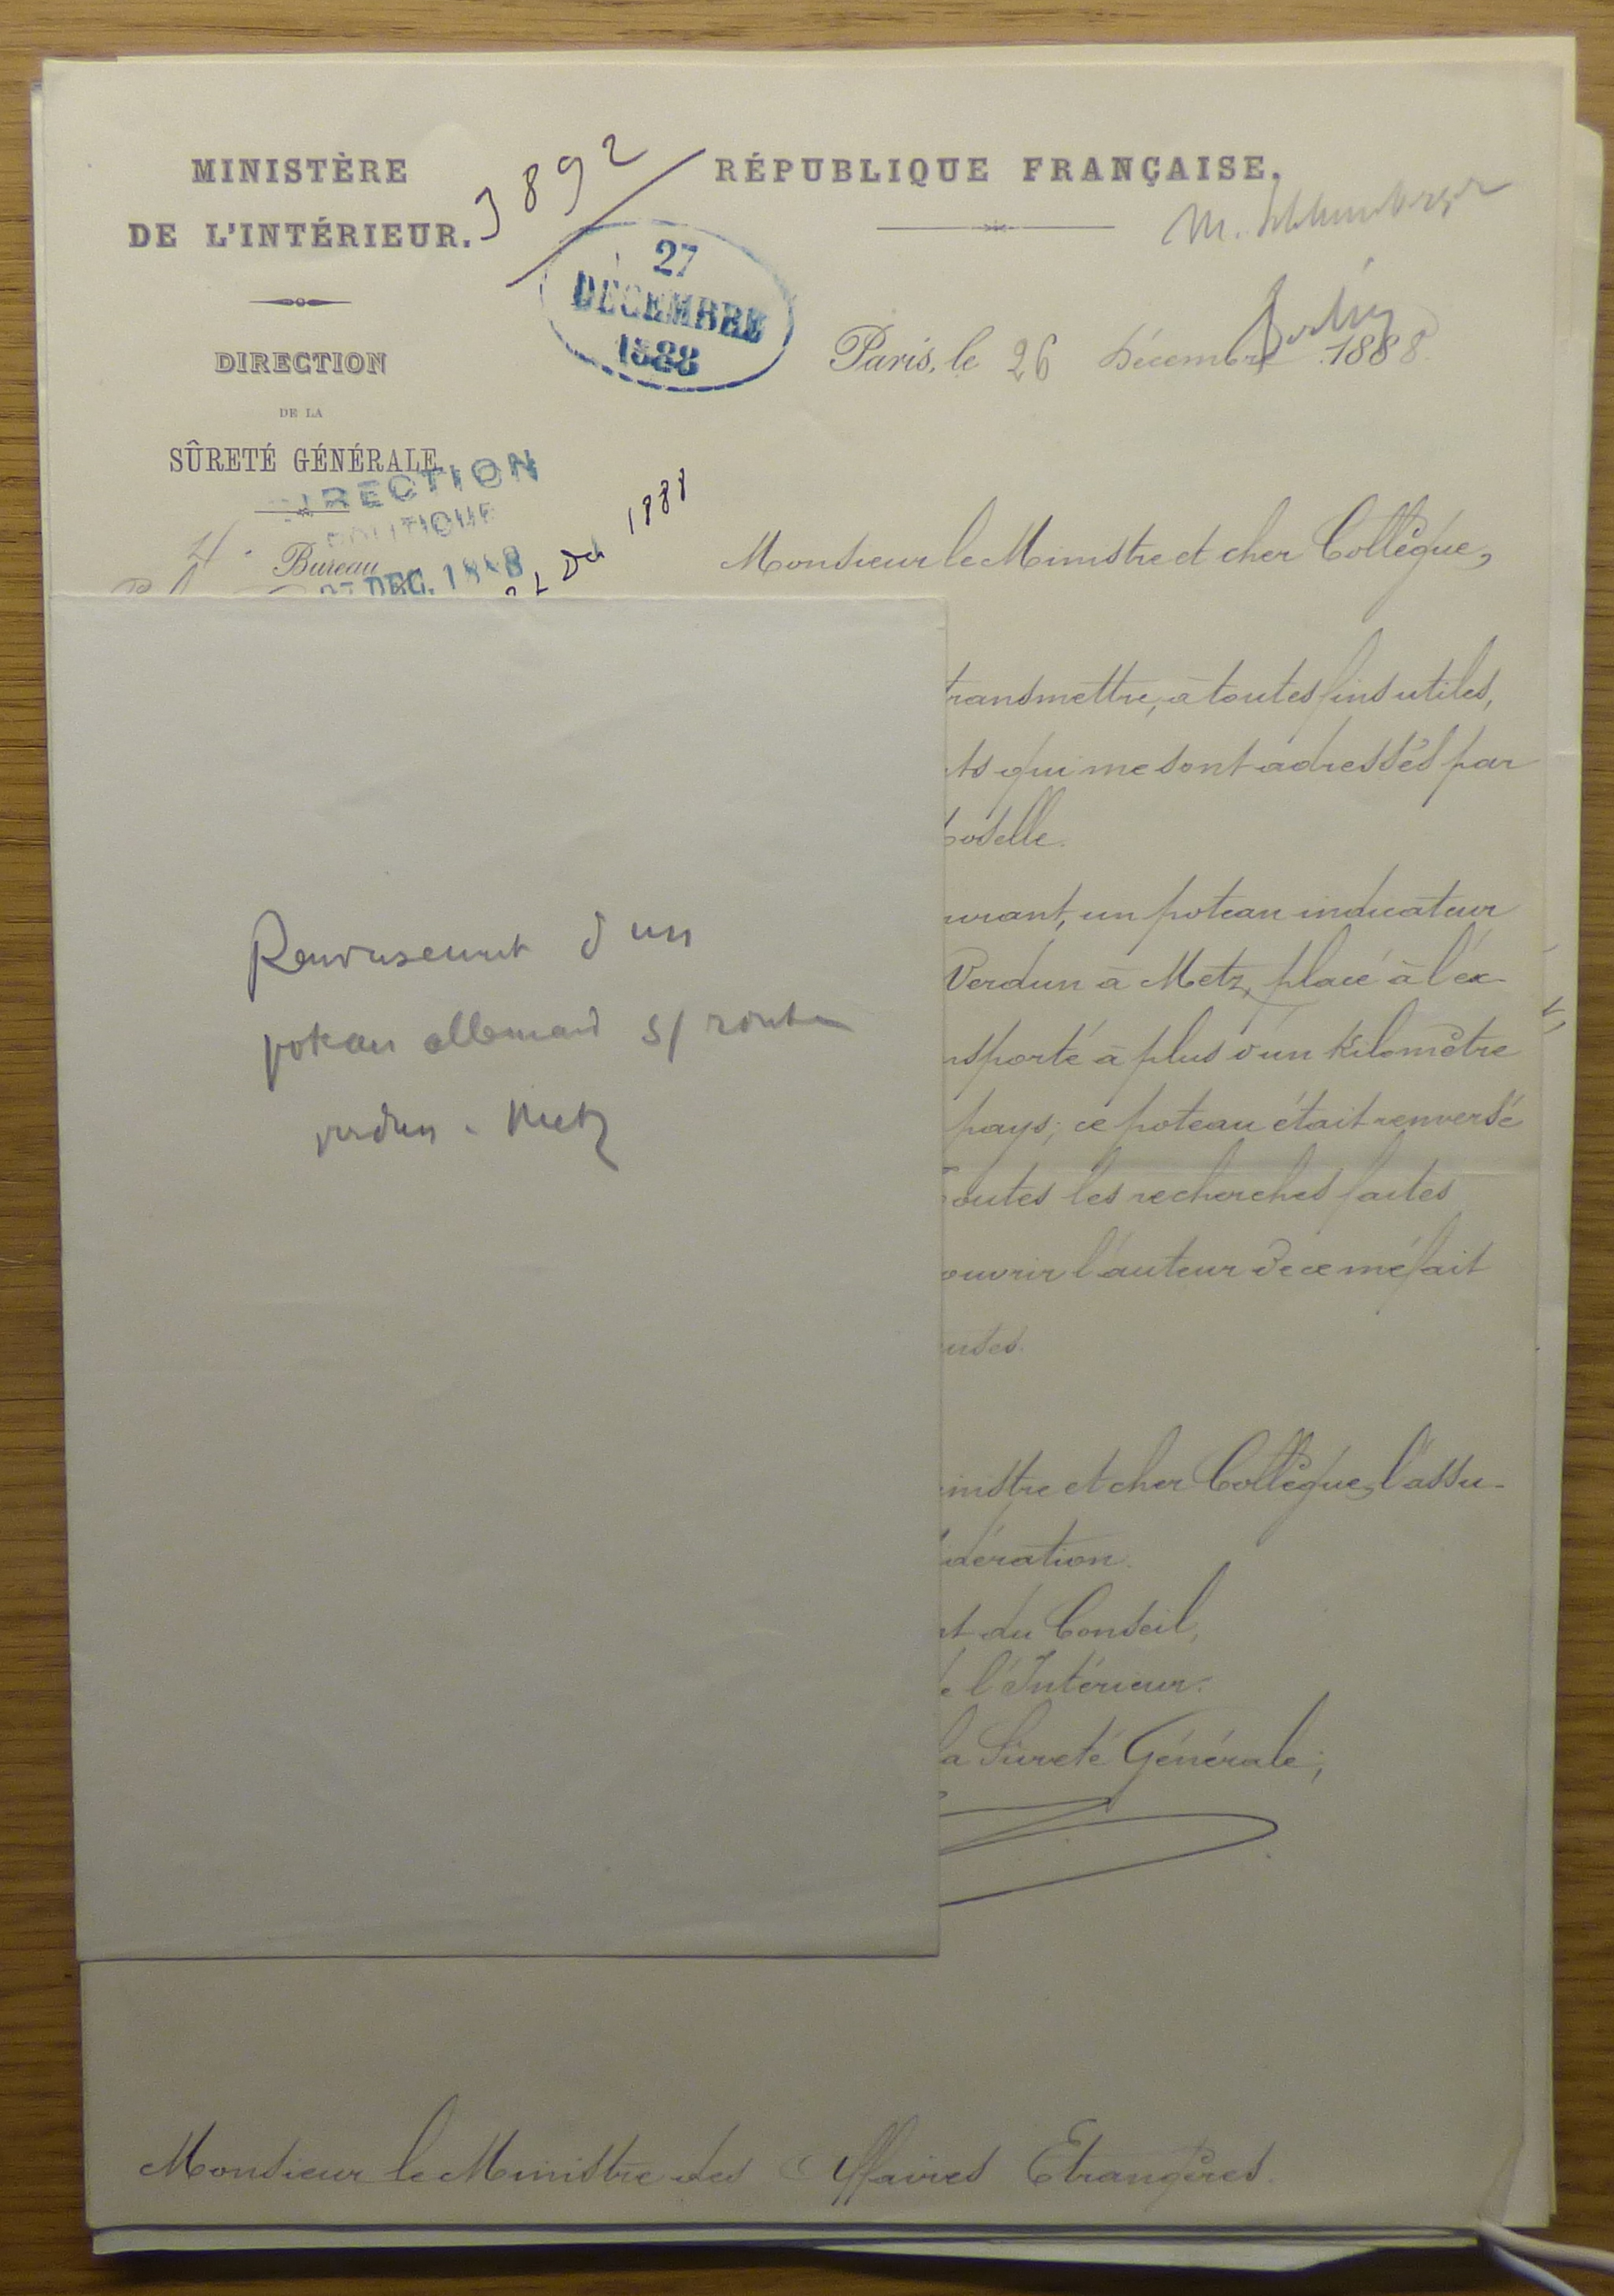 MINISTÈRE
DE L'INTÉRIEUR.
3892
RÉPUBLIQUE FRANÇAISE.
M. Schlumberger
27
DÉCEMBRE
1888
Berlin
Paris, le 26 Décembre 1888
DIRECTION
DE LA
SÛRETÉ GÉNÉRALE
DIRECTION
POLITIQUE
27 DEC. 1888
4. Bureau
1888
Monsieur le Ministre et cher Collègue,
transmettre, à toutes fins utiles,
ts qui me sont adressés par
oselle.
urant, un poteau indicateur
Verdun à Metz, placé à l'ex-
nsporté à plus d'un kilomètre
pays; ce poteau était renversé
outes les recherches faites
ouvrir l'auteur de ce méfait
uses.
inistre et cher Collègue, l'assu-
idération.
nt du Conseil,
e l'Intérieur.
la Sureté Générale;
Renversement d'un
poteau allemand s/ route
Verdun à Metz
Monsieur le Ministre des Affaires Etrangères.